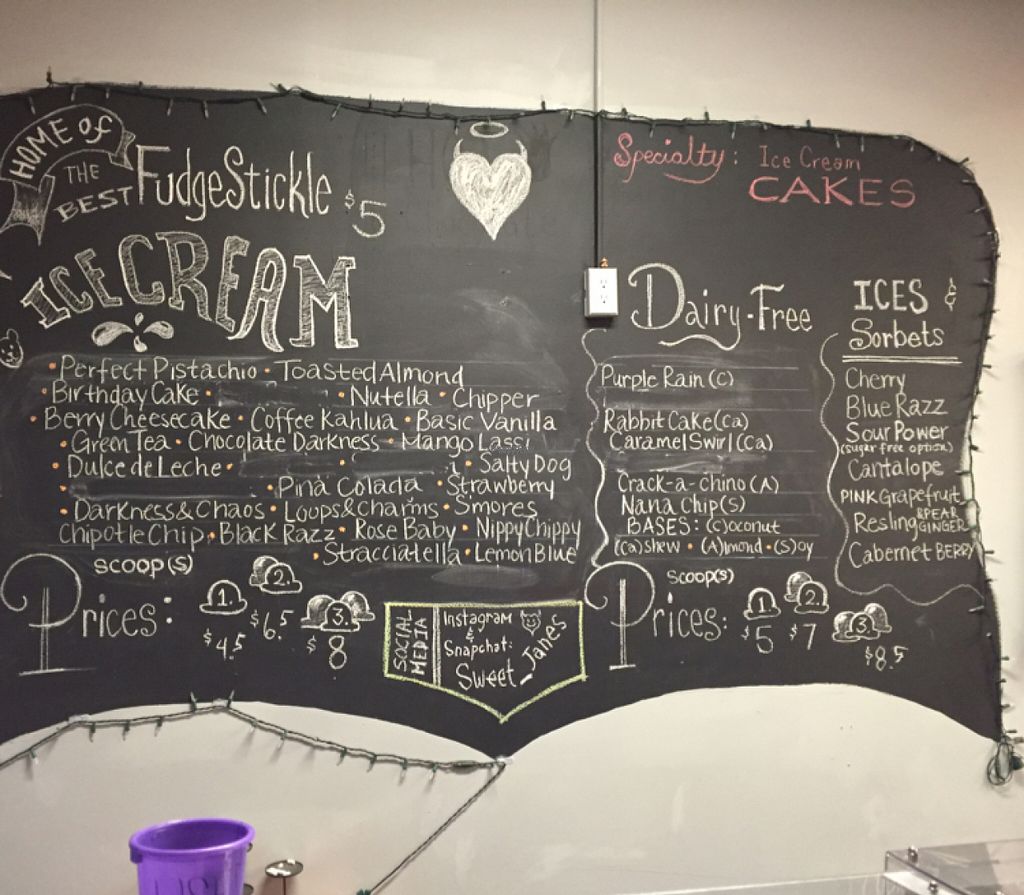 HOME OF
THE
BEST
FudgeStickle $5
ICE CREAM
• Perfect Pistachio • Toasted Almond
• Birthday Cake • • Nutella • Chipper
• Berry Cheesecake • Coffee Kahlua • Basic Vanilla
• Green Tea • Chocolate Darkness • Mango Lassi
• Dulce de Leche • • Salty Dog
• • Pina Colada • Strawberry
• Darkness & Chaos • Loops & Charms • S'mores
Chipotle Chip • Black Razz • Rose Baby • Nippy Chippy
• Stracciatella • Lemon Blue
Prices:
scoop(s)
1. 2. 3.
$4.5 $6.5 $8
SOCIAL
MEDIA
Instagram
&
Snapchat:
Sweet Janes
Specialty: Ice Cream
CAKES
Dairy-Free
Purple Rain (C)
Rabbit Cake (Ca)
Caramel Swirl (Ca)
Crack-a-Chino (A)
Nana Chip (S)
BASES: (C)oconut
(Ca)shew • (A)lmond • (S)oy
Prices:
scoop(s)
1 2 3
$5 $7 $8.5
ICES &
Sorbets
Cherry
Blue Razz
Sour Power
(sugar free option)
Cantalope
PINK Grapefruit
Resling & PEAR GINGER
Cabernet BERRY